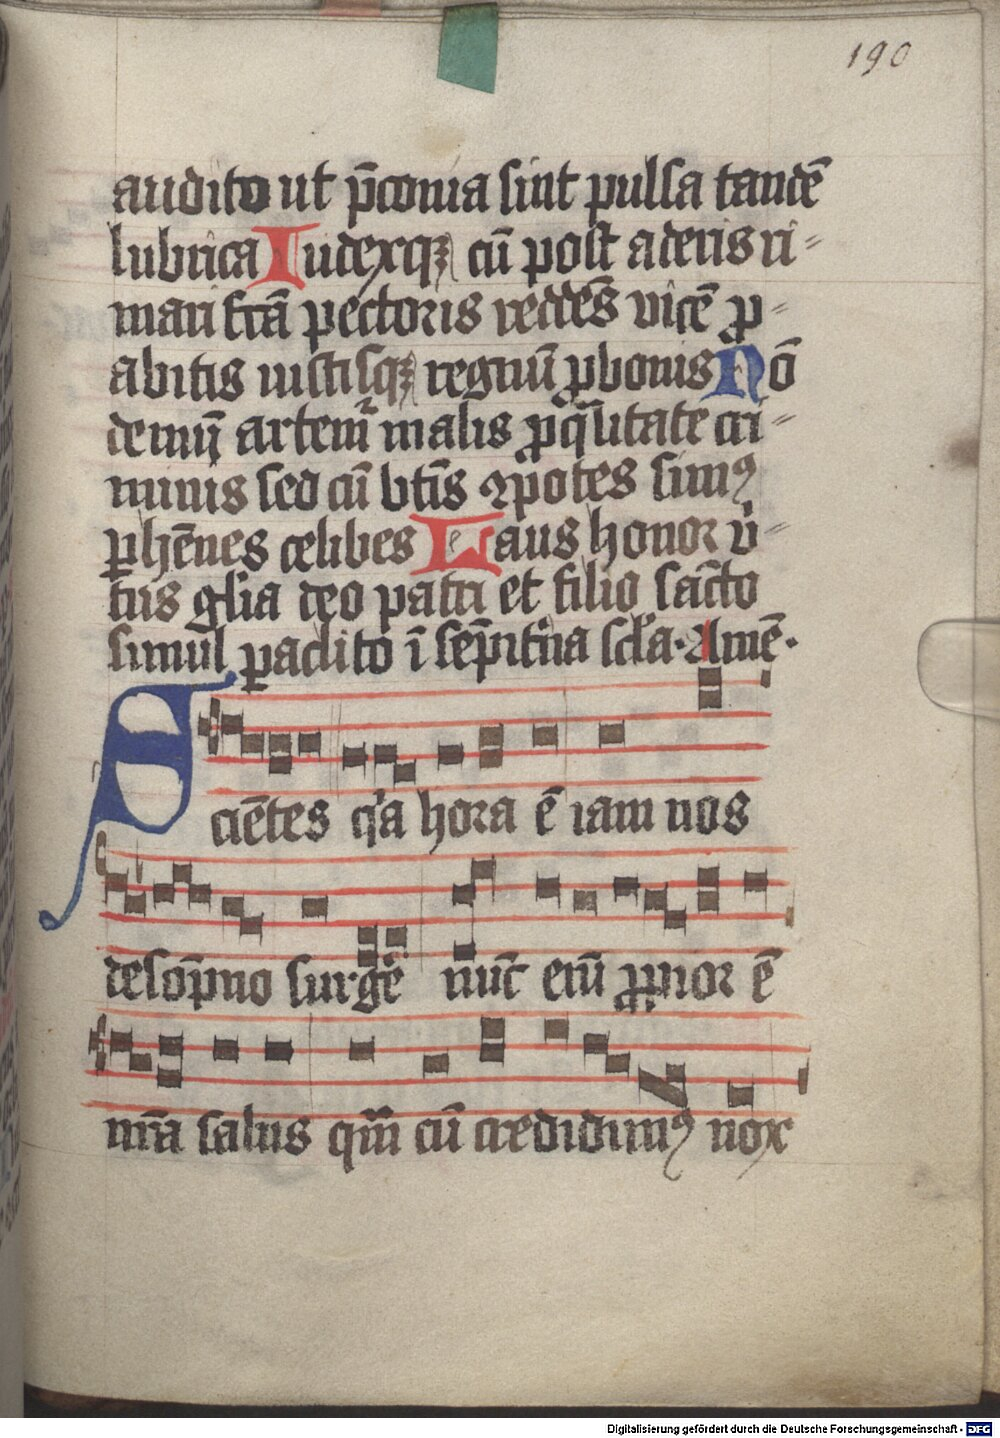 190
audito ut p̄conia sint pulsa tandē
lubrica Iudexqꝫ cū post aderis ri-
mari fc̄ā pectoris reddēs vicē ꝓ
abitis iustisqꝫ regnū ꝓ bonis Nō
demū artem̄ malis ꝓ q̄litate cri-
minis sed cū bt̄is ꝯpotes simꝰ
ꝑhēnes celibes Laus honor v̄-
tus gl̄ia deo patri et filio sāc̄to
simul ꝑaclito ī sēp̄itn̄a scl̄a. Amē.
Sciētes qͥa hora ē iam nos
de sōp̄no surgē nūc em̄ ꝓpior ē
nr̄a salus qm̄ cū credidimꝰ nox
Digitalisierung gefördert durch die Deutsche Forschungsgemeinschaft - DFG